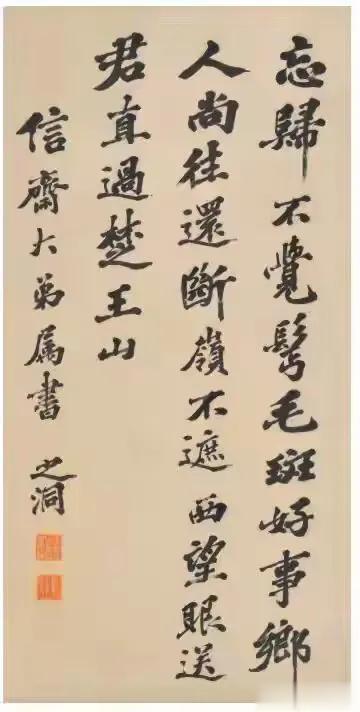 忘歸不覺鬢毛斑好事鄉
人尚往還斷嶺不遮西望眼送
君直過楚王山
信齋大弟属書 之洞